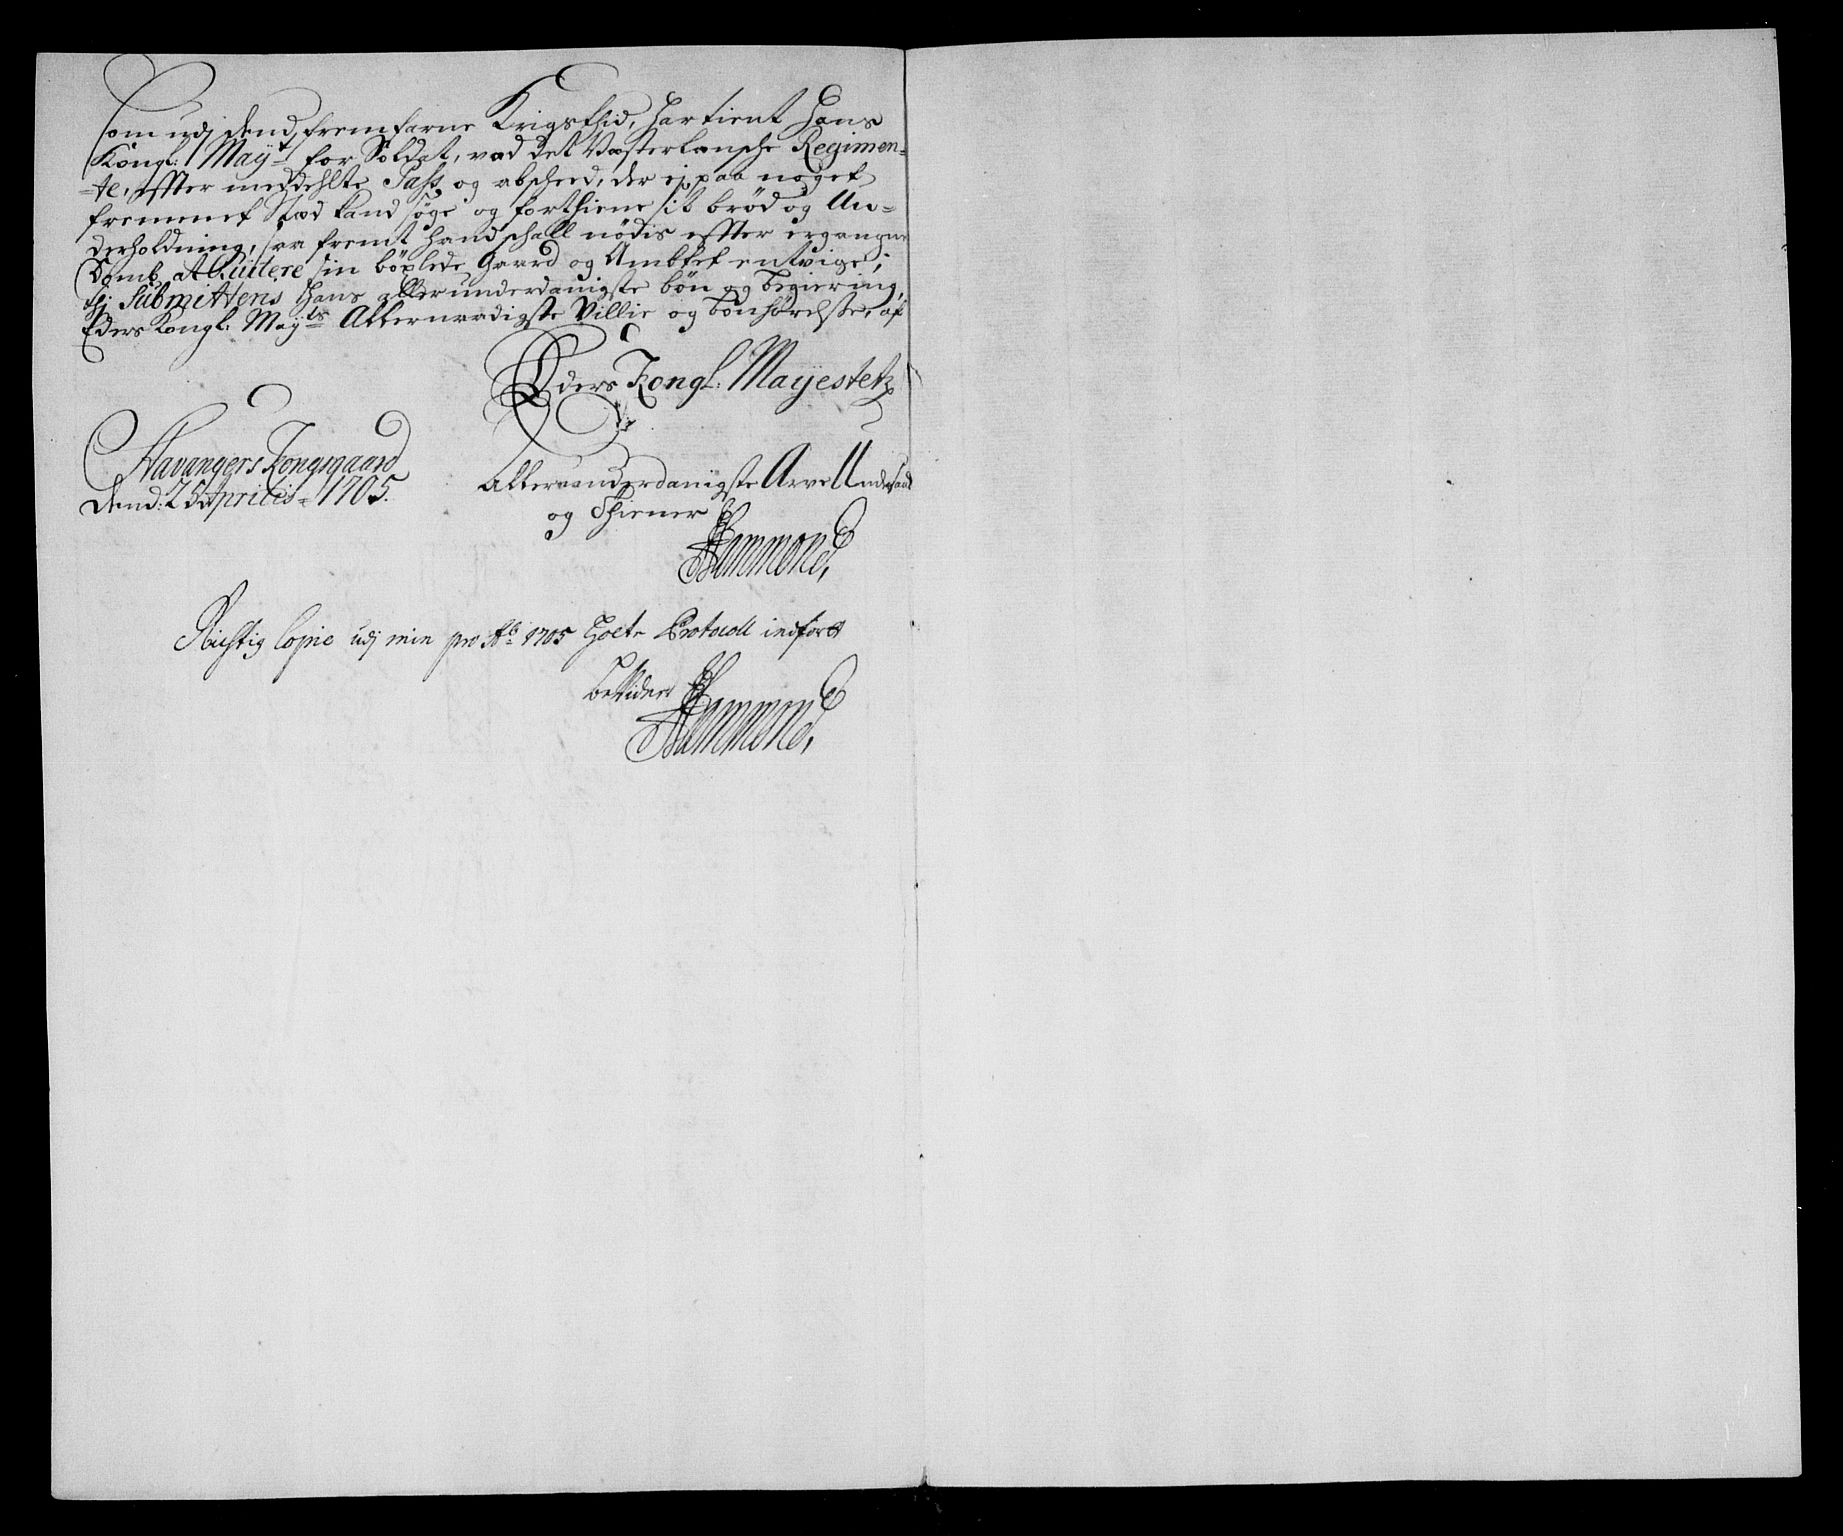 Som udj dend fremfarne Krigsthid, har tient Hans
Kongl: Mayt for Soldat, ved det Vesterlensche Regimen-
-te, effter meddehlte Pass og abscheed, der ej paa noget
fremmet Sted kand søge og forthiene sit brød og Un-
derholdning, saa fremt hand schall nødis effter ergangne
Domb at Quitere sin böxlede Gaard og Ambtet entvige;
thj Submitteris Hans allerunderdanigste bön og begiering,
Eders Kongl: Mayts Allernaadigste Villie og bönhörelse, af
Eders Kongl: Mayestetz
Stavangers Kongsgaard
Dend: 25 Aprilis 1705.
Allerunderdanigste Arve Undersaat
og Thiener
Hammond,
Richtig Copie udj min pro Ao 1705 holte Protocoll indfört
bevidner
Hammond,